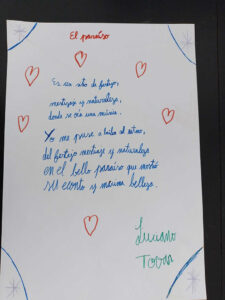 El paraíso
Es un sitio de festejo,
mestizaje y naturaleza,
donde se oía una música.
Yo me puse a bailar al ritmo,
del festejo mestizaje y naturaleza
en el bello paraíso que mostró
su encanto y misma belleza.
Luciano
Tovar